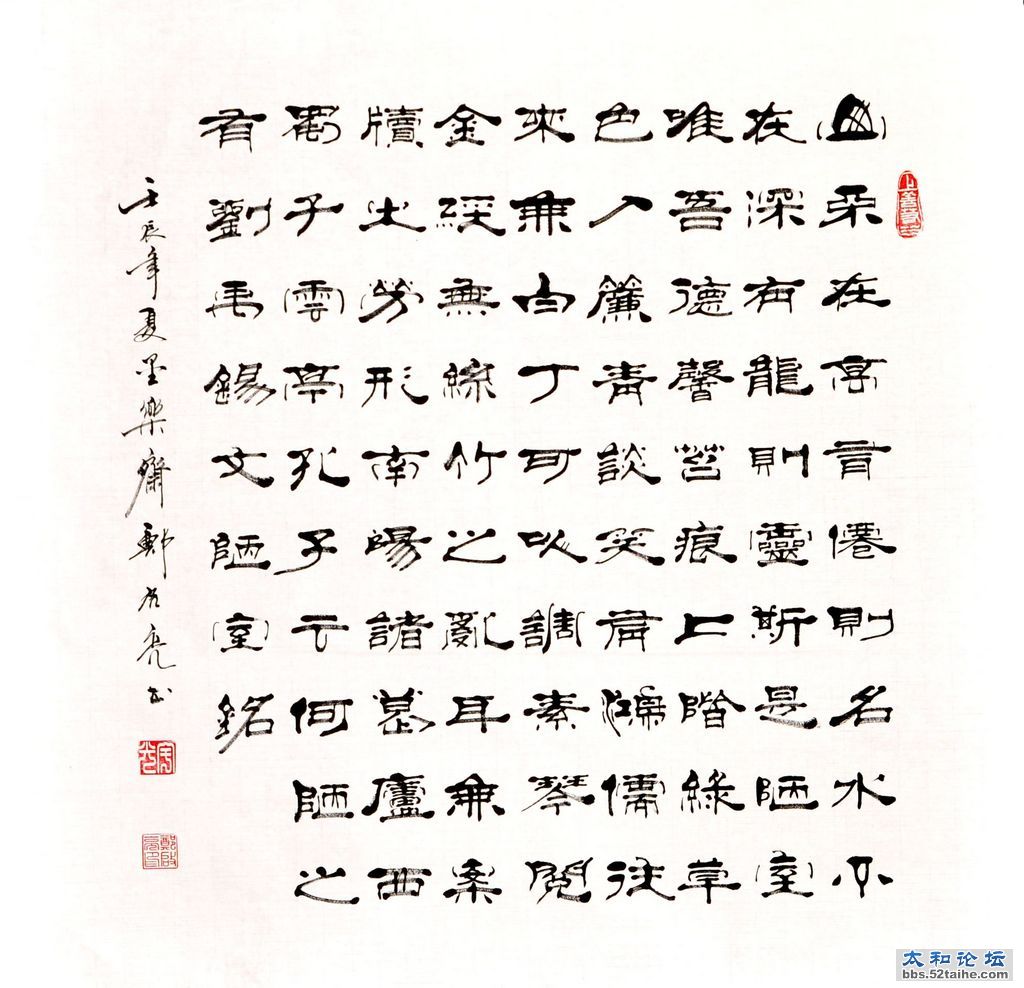 山不在高有僊則名水不
在深有龍則靈斯是陋室
唯吾德馨苔痕上階綠草
色入簾青談笑有鴻儒往
來無白丁可以調素琴閱
金經無絲竹之亂耳無案
牘之勞形南陽諸葛廬西
蜀子雲亭孔子云何陋之
有劉禹錫文陋室銘
壬辰年夏墨樂齋鄭啟亮書
太和论坛
bbs.52taihe.com